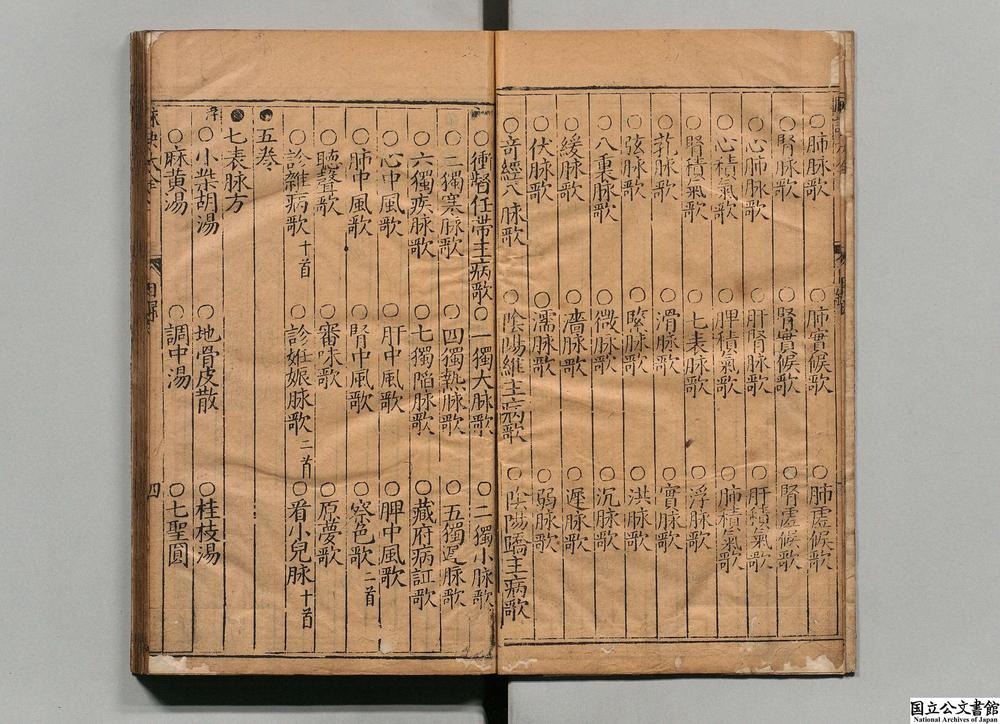 ○肺脉歌 ○肺實候歌 ○肺虛候歌
○腎脉歌 ○腎實候歌 ○腎虛候歌
○心肺脉歌 ○肝腎脉歌 ○肝積氣歌
○心積氣歌 ○脾積氣歌 ○肺積氣歌
○腎積氣歌 ○七表脉歌 ○浮脉歌
○芤脉歌 ○滑脉歌 ○實脉歌
○弦脉歌 ○緊脉歌 ○洪脉歌
○八裏脉歌 ○微脉歌 ○沉脉歌
○緩脉歌 ○濇脉歌 ○遲脉歌
○伏脉歌 ○濡脉歌 ○弱脉歌
○奇經八脉歌 ○陰陽維主病歌 ○陰陽蹻主病歌
○衝督任帶主病歌 ○一獨大脉歌 ○二獨小脉歌
○二獨寒脉歌 ○四獨熱脉歌 ○五獨遲脉歌
○六獨疾脉歌 ○七獨陷脉歌 ○藏府病証歌
○心中風歌 ○肝中風歌 ○脾中風歌
○肺中風歌 ○腎中風歌 ○察色歌二首
○聽聲歌 ○審味歌 ○原夢歌
○診雜病歌十首 ○診妊娠脉歌二首 ○看小兒脉十首
●五卷
●七表脉方
○小柴胡湯 ○地骨皮散 ○桂枝湯
○麻黃湯 ○調中湯 ○七聖圓
脉訣大全 目録 四
国立公文書館
National Archives of Japan